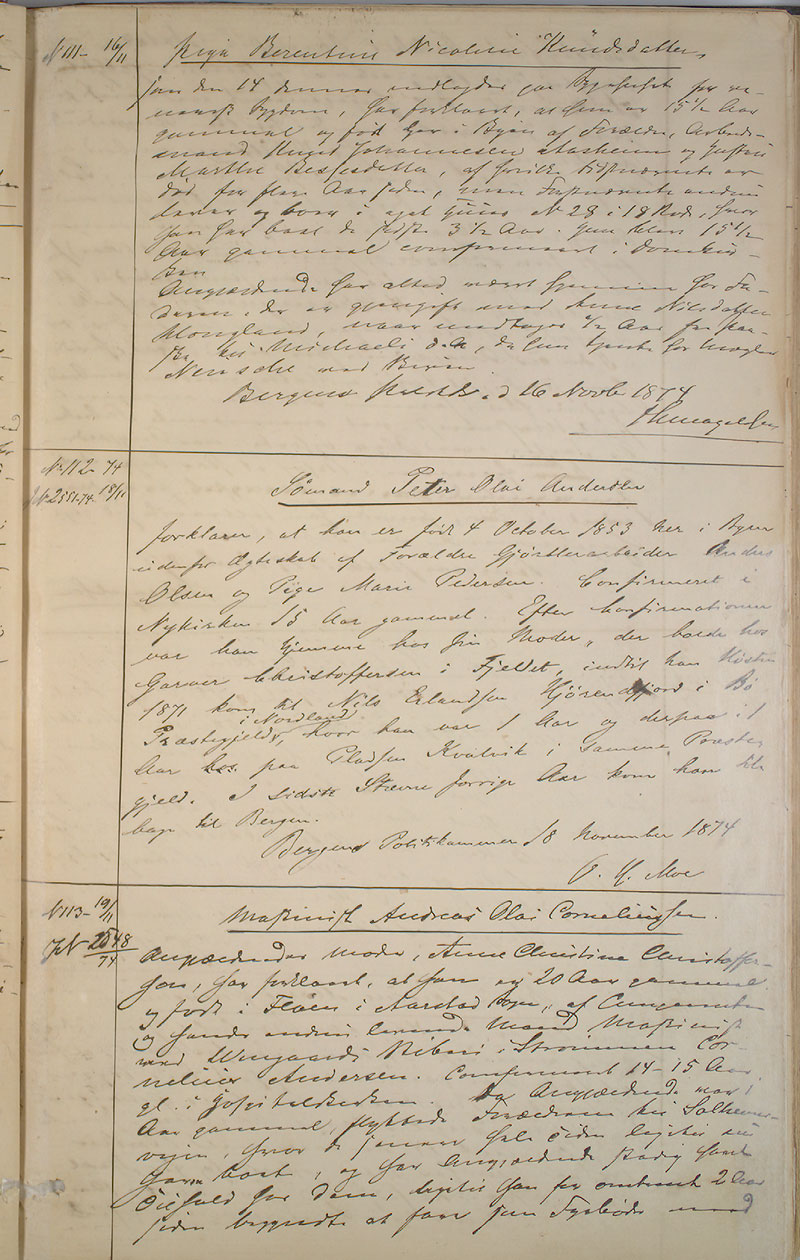 N 111- 16/11
Pige Berentine Nicoline Knudsdatter,
som den 14 dennes indlagdes paa Sygehuset for ve-
nerisk Sygdom, har forklaret, at hun er 15 1/2 Aar
gammel og født her i Byen af Forældre, Arbeids-
mand Knud Johannesen og Hustru
Marthe, af hvilke Sidstnævnte er
død for flere Aar siden, men Førstnævnte endnu
lever og boer i eget Huus N 28 i 18 Rode, hvor
han har boet de sidste 3 1/2 Aar. Hun blev 15 1/2
Aar gammel confirmeret i Domkir-
ken
Angjældende har altid været hjemme hos Fa-
deren, der er gjengift med Anne Nilsdatter
, naar undtages 1/2 Aar fra Paa-
ske til Michaeli d.A., da hun tjente hos
ved Byen.
Bergens d 16 Novb 1874

No 112- 74
J.N. 2551-74 18/11
Sømand Peter Olai Andersen
forklarer, at han er født 4 October 1853 her i Byen
udenfor Ægteskab af Forældre Gjørtlerarbeider Anders
Olsen og Pige Marie Pedersen. Confirmeret i
Nykirken 15 Aar gammel. Efter Confirmationen
var han hjemme hos sin Moder, der boede hos
Garver Christoffersen i Fjeldet, indtil han Høsten
1871 kom til Nils Erlandsen Hjørendfjord i Bø
Præstegjeld i Nordland, hvor han var 1 Aar og derpaa i 1
Aar paa Pladsen Kvalvik i samme Præste-
gjeld. I sidste Stævne forrige Aar kom han til-
bage til Bergen.
Bergens Politikammer 18 November 1874
P. H. Moe

N 113- 19/11
JN 2548/74
Maskinist Andreas Olai Corneliussen.
Angjældendes Moder, Anne Christine Christoffer-
sen, har forklaret, at han er 20 Aar gammel
og født i Fløen i Aarstad Sogn, af Comparentin
og hendes endnu levende Mand Maskinist
ved Wingaards i Strømmen Cor-
nelius Andersen. Confirmeret 14-15 Aar
gl. i Hospitalskirken. Da Angjældende var 1
Aar gammel, flyttede Forældrene til Solheims-
veien, hvor de senere hele Tiden ligetil nu
have boet, og har Angjældende stadig havt
Tilhold hos dem, ligetil han for omtrent 2 Aar
siden begyndte at fare som Fyrbøder med